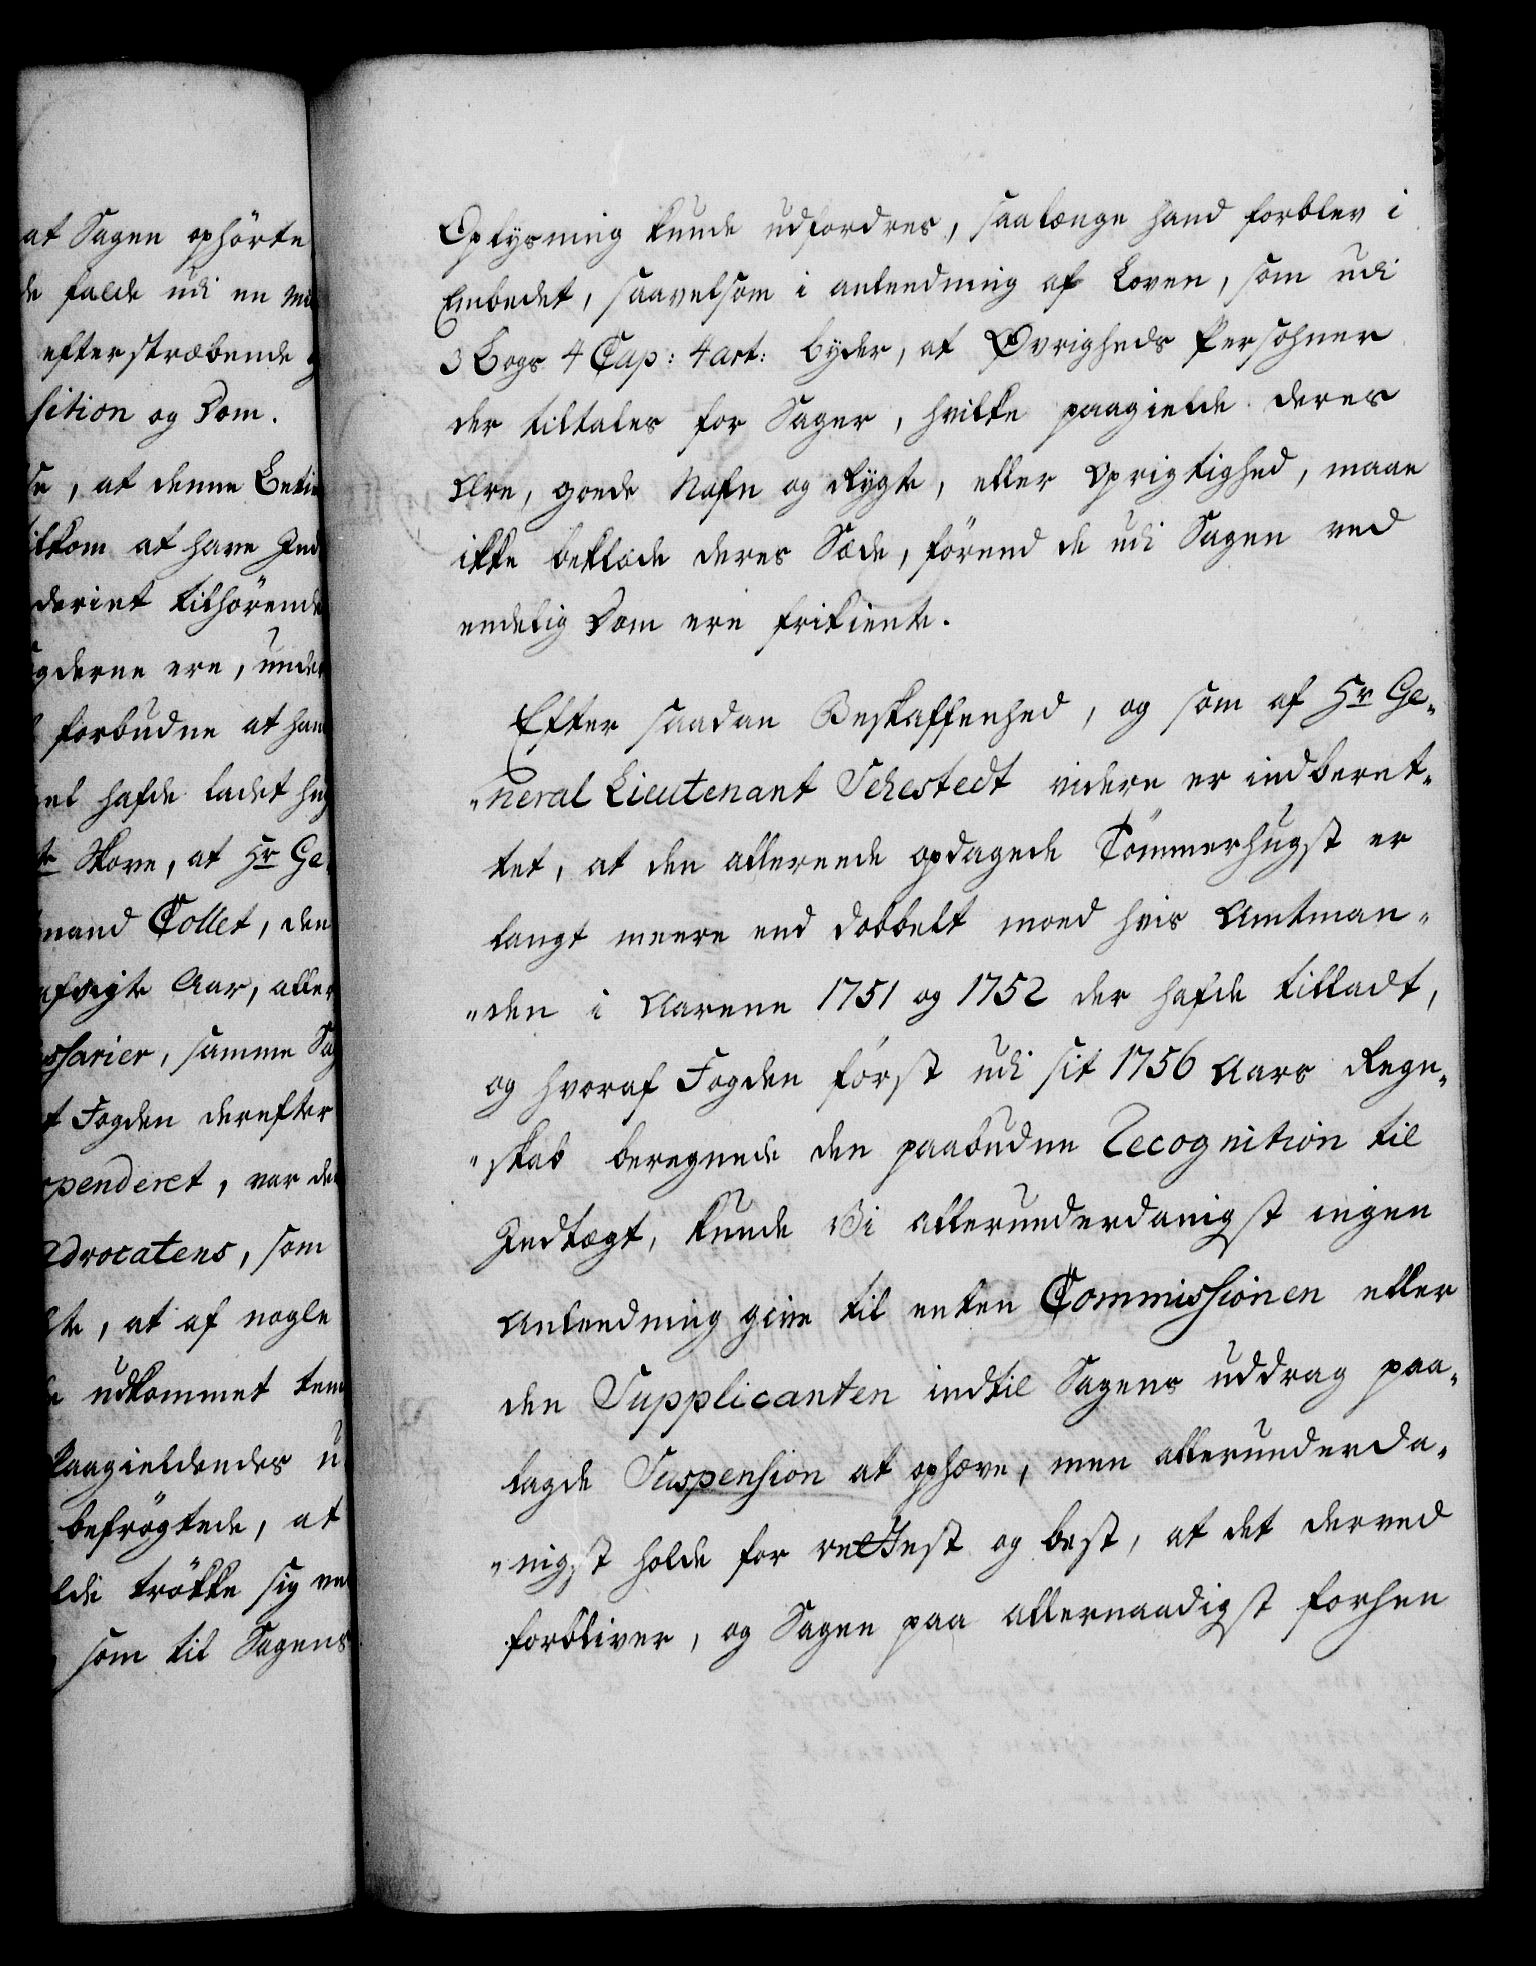 at Sagen ophörte
falde udi en
efterstræbende
sition og Dom.
, at denne
at have
tilhörende
ere, under
forbudne at
hafde ladet
Skove, at Hr Ge„
mand Collet, den
Aar,
ssarier, samme
Fogden derefter
spenderet, var
Advocatens, som
, at af nogle
udkommet
Paagieldendes
befrögtede, at
trökke sig
som til Sagens
Oplysning kunde udfordres, saalænge hand forblev i
Embedet, saavelsom i anleedning af Loven, som udi
3 Bogs 4 Cap: 4 art: byder, at Øvrigheds Persohner
der tiltales for Sager, hvilke paagielde deres
Ære, goede Nafn og Rygte, eller Oprigtighed, maae
ikke beklæde deres Sæde, förend de udi Sagen ved
endelig Dom ere frikiendte.
Efter saadan Beskaffenhed, og som af Hr Ge„
„neral Lieutenant Sehestedt videre er indberet„
tet, at den allereede opdagede Tömmerhugst er
langt meere end dobbelt moed hvis Amtman„
„den i Aarene 1751 og 1752 der hafde tilladt,
og hvoraf Fogden först udi sit 1756 Aars Regn„
„skab beregnede den paabudne Recognition til
Indtægt, kunde Vi allerunderdanigst ingen
Anleedning give til enten Commissionen eller
den Supplicanten indtil Sagens uddrag paa„
lagde Suspension at ophæve, men allerunderda„
„nigst holde for rettest og best, at det derved
forbliver, og Sagen paa allernaadigst forhen